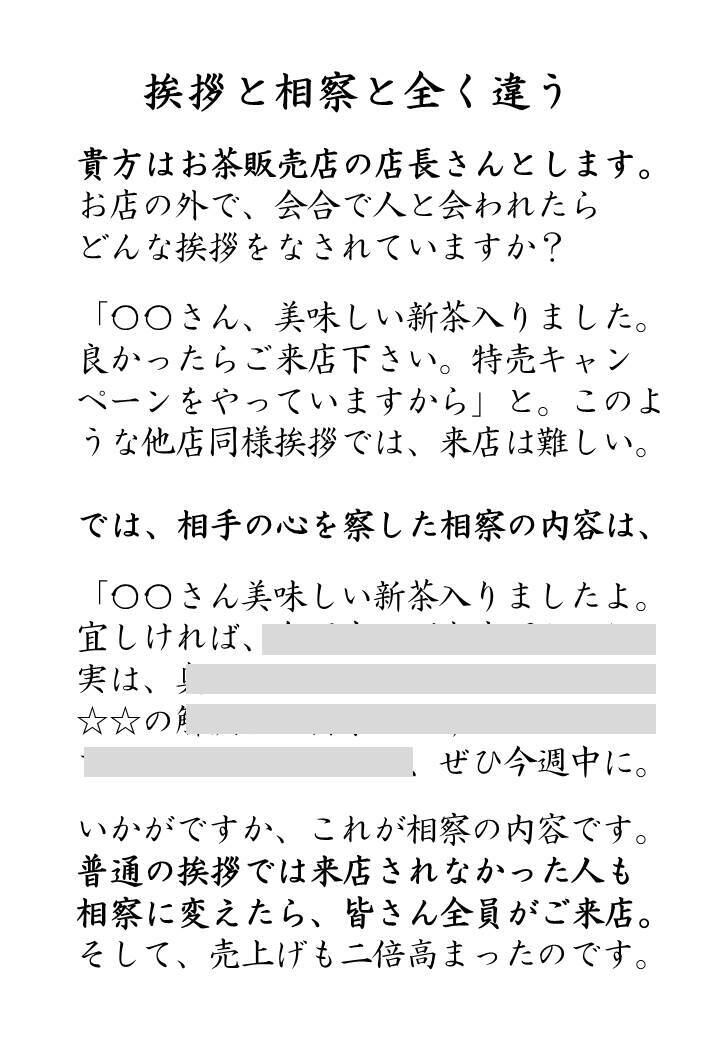 挨拶と相察と全く違う
貴方はお茶販売店の店長さんとします。
お店の外で、会合で人と会われたら
どんな挨拶をなされていますか？
「〇〇さん、美味しい新茶入りました。
良かったらご来店下さい。特売キャン
ペーンをやっていますから」と。このよ
うな他店同様挨拶では、来店は難しい。
では、相手の心を察した相察の内容は、
「〇〇さん美味しい新茶入りましたよ。
宜しければ、
実は、
☆☆の
、ぜひ今週中に。
いかがですか、これが相察の内容です。
普通の挨拶では来店されなかった人も
相察に変えたら、皆さん全員がご来店。
そして、売上げも二倍高まったのです。